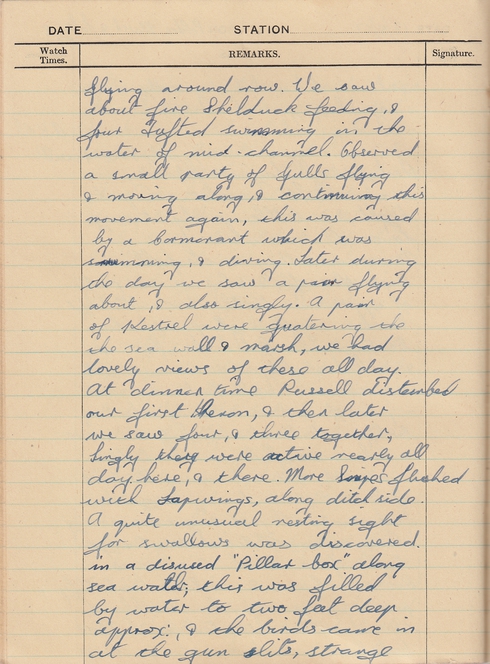 DATE STATION
Watch Times. REMARKS. Signature.
flying around now. We saw
about five Shelduck feeding, &
four Tufted swimming in, the
water of mid-channel. Observed
a small party of gulls flying
& moving along, & continuing this
movement again, this was caused
by a Cormorant which was
swimming, & diving. Later during
the day we saw a pair flying
about, & also singly. A pair
of Kestrel were quatering the
the sea wall & marsh, we had
lovely views of these all day.
At dinner time Russell disturbed
our first Heron, & then later
we saw four, & three together,
Singly they were active nearly all
day here, & there. More Snipes flushed
with Lapwings, along ditch side.
A quite unusual nesting sight
for swallows was discovered.
in a disused "Pillar box" along
sea wall; this was filled
by water to two feet deep
approx:, & the birds came in
at the gun slits, strange